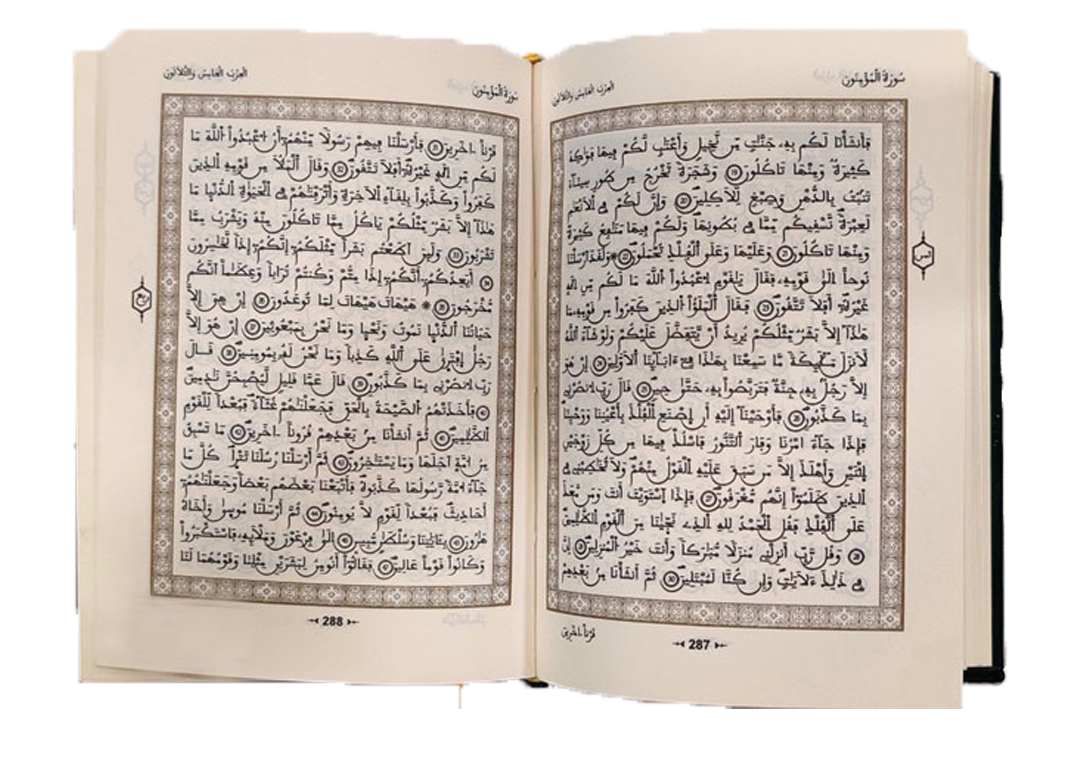 سورة المؤمنون
الحزب الخامس والثلاثون
فَأَنشَأْنَا لَكُم بِهِۦ جَنَّٰتٖ مِّن نَّخِيلٖ وَأَعْنَٰبٖ لَّكُمْ فِيهَا فَوَٰكِهُ
كَثِيرَةٞ وَمِنْهَا تَاكُلُونَ 19 وَشَجَرَةٗ تَخْرُجُ مِن طُورِ سِينَآءَ
تَنۢبُتُ بِالدُّهْنِ وَصِبْغٖ لِّلَاكِلِينَ 20 وَإِنَّ لَكُمْ فِى الَانْعَٰمِ
لَعِبْرَةٗ نَّسْقِيكُم مِّمَّا فِى بُطُونِهَا وَلَكُمْ فِيهَا مَنَٰفِعُ كَثِيرَةٞ
وَمِنْهَا تَاكُلُونَ 21 وَعَلَيْهَا وَعَلَى الْفُلْكِ تُحْمَلُونَ 22 * وَلَقَدَ ارْسَلْنَا
نُوحاً اِلَىٰ قَوْمِهِۦ فَقَالَ يَٰقَوْمِ اِعْبُدُواْ اللَّهَ مَا لَكُم مِّنِ اِلَٰهٍ
غَيْرُهُۥٓ أَفَلَا تَتَّقُونَ 23 فَقَالَ الْمَلَؤُاْ الذِينَ كَفَرُواْ مِن قَوْمِهِۦ مَا
هَٰذَآ إِلَّا بَشَرٞ مِّثْلُكُمْ يُرِيدُ أَنْ يَّتَفَضَّلَ عَلَيْكُمْ وَلَوْ شَآءَ اللَّهُ
لَأَنزَلَ مَلَٰٓئِكَةٗ مَّا سَمِعْنَا بِهَٰذَا فِىٓ ءَابَآئِنَا الَاوَّلِينَ 24 إِنْ هُوَ
إِلَّا رَجُلُۢ بِهِۦ جِنَّةٞ فَتَرَبَّصُواْ بِهِۦ حَتَّىٰ حِينٖ 25 قَالَ رَبِّ انصُرْنِى
بِمَا كَذَّبُونِ 26 فَأَوْحَيْنَآ إِلَيْهِ أَنِ اِصْنَعِ الْفُلْكَ بِأَعْيُنِنَا وَوَحْيِنَا
فَإِذَا جَآءَ امْرُنَا وَفَارَ التَّنُّورُ فَاسْلُكْ فِيهَا مِن كُلِّ زَوْجَيْنِ
اِثْنَيْنِ وَأَهْلَكَ إِلَّا مَن سَبَقَ عَلَيْهِ الْقَوْلُ مِنْهُمْ وَلَا تُخَٰطِبْنِى فِى
الذِينَ ظَلَمُوٓاْ إِنَّهُم مُّغْرَقُونَ 27 فَإِذَا اسْتَوَيْتَ أَنتَ وَمَن مَّعَكَ
عَلَى الْفُلْكِ فَقُلِ الْحَمْدُ لِلهِ الذِى نَجَّيٰنَا مِنَ الْقَوْمِ الظَّٰلِمِينَ
28 وَقُل رَّبِّ أَنزِلْنِى مُنزَلٗا مُّبَٰرَكاٗ وَأَنتَ خَيْرُ الْمُنزِلِينَ 29 إِنَّ
فِى ذَٰلِكَ ءَلَايَٰتٖ وَإِن كُنَّا لَمُبْتَلِينَ 30 ثُمَّ أَنشَأْنَا مِنۢ بَعْدِهِمْ
قَرْناً اٰخَرِينَ
287
الثمن
الحزب الخامس والثلاثون
سورة المؤمنون
قَرْناً اٰخَرِينَ 31 فَأَرْسَلْنَا فِيهِمْ رَسُولٗا مِّنْهُمُۥٓ أَنُ اعْبُدُواْ اللَّهَ مَا
لَكُم مِّنِ اِلَٰهٍ غَيْرُهُۥٓ أَفَلَا تَتَّقُونَ 32 وَقَالَ الْمَلَأُ مِن قَوْمِهِ الذِينَ
كَفَرُواْ وَكَذَّبُواْ بِلِقَآءِ الَاخِرَةِ وَأَتْرَفْنَٰهُمْ فِى الْحَيَوٰةِ الدُّنْيَا مَا
هَٰذَآ إِلَّا بَشَرٞ مِّثْلُكُمْ يَاكُلُ مِمَّا تَاكُلُونَ مِنْهُ وَيَشْرَبُ مِمَّا
تَشْرَبُونَ 33 وَلَئِنَ اَطَعْتُم بَشَراٗ مِّثْلَكُمُۥٓ إِنَّكُمُۥٓ إِذاٗ لَّخَٰسِرُونَ
34 أَيَعِدُكُمُۥٓ أَنَّكُمُۥٓ إِذَا مِتُّمْ وَكُنتُمْ تُرَاباٗ وَعِظَٰماً اَنَّكُم
مُّخْرَجُونَ 35 * هَيْهَاتَ هَيْهَاتَ لِمَا تُوعَدُونَ 36 إِنْ هِىَ إِلَّا
حَيَاتُنَا الدُّنْيَا نَمُوتُ وَنَحْيَا وَمَا نَحْنُ بِمَبْعُوثِينَ 37 إِنْ هُوَ إِلَّا
رَجُلٌ اِفْتَرَىٰ عَلَى اللَّهِ كَذِباٗ وَمَا نَحْنُ لَهُۥ بِمُومِنِينَ 38 قَالَ
رَبِّ انصُرْنِى بِمَا كَذَّبُونِ 39 قَالَ عَمَّا قَلِيلٖ لَّيُصْبِحُنَّ نَٰدِمِينَ
40 فَأَخَذَتْهُمُ الصَّيْحَةُ بِالْحَقِّ فَجَعَلْنَٰهُمْ غُثَآءٗ فَبُعْداٗ لِّلْقَوْمِ
الظَّٰلِمِينَ 41 ثُمَّ أَنشَأْنَا مِنۢ بَعْدِهِمْ قُرُوناً اٰخَرِينَ 42 مَا تَسْبِقُ
مِنُ امَّةٍ اَجَلَهَا وَمَا يَسْتَٰخِرُونَ 43 ثُمَّ أَرْسَلْنَا رُسُلَنَا تَتْرَا كُلَّ مَا
جَآءَ امَّةٗ رَّسُولُهَا كَذَّبُوهُ فَأَتْبَعْنَا بَعْضَهُم بَعْضاٗ وَجَعَلْنَٰهُمُۥٓ
أَحَادِيثَ فَبُعْداٗ لِّقَوْمٖ لَّا يُومِنُونَ 44 ثُمَّ أَرْسَلْنَا مُوسَىٰ وَأَخَاهُ
هَٰرُونَ 45 بِـَٔايَٰتِنَا وَسُلْطَٰنٖ مُّبِينٍ 46 اِلَىٰ فِرْعَوْنَ وَمَلَإِيْهِۦ فَاسْتَكْبَرُواْ
وَكَانُواْ قَوْماً عَالِينَ 47 فَقَالُوٓاْ أَنُومِنُ لِبَشَرَيْنِ مِثْلِنَا وَقَوْمُهُمَا لَنَا
288
ربع